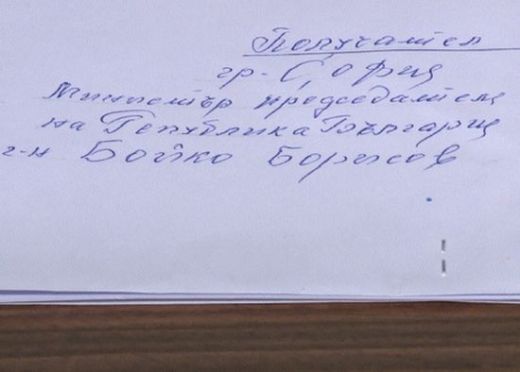 Получател
гр. София
Министър председателя
на Република България
г-н Бойко Борисов